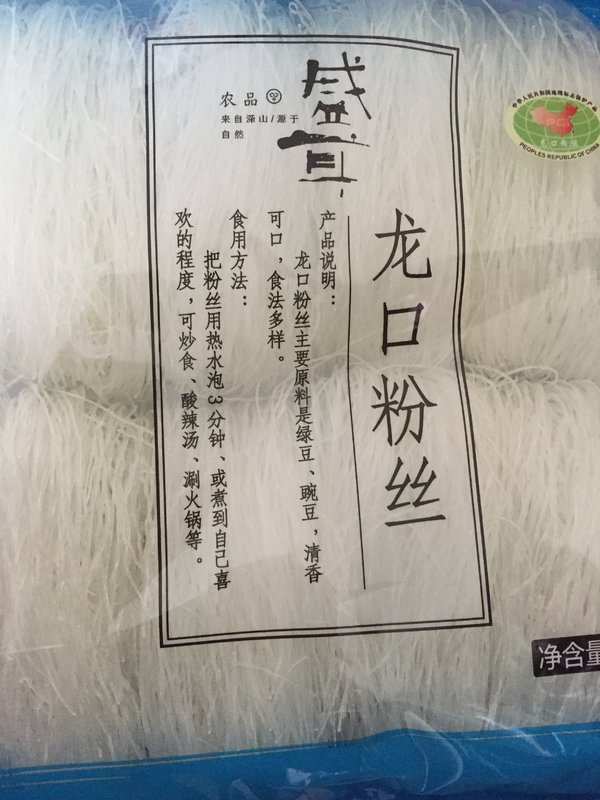 盛
农品
来自深山/源于
自然
中华人民共和国地理标志保护产品
PEOPLES REPUBLIC OF CHINA
龙口粉丝
产品说明：
龙口粉丝主要原料是绿豆、豌豆，清香
可口，食法多样。
食用方法：
把粉丝用热水泡3分钟、或煮到自己喜
欢的程度，可炒食、酸辣汤、涮火锅等。
净含量